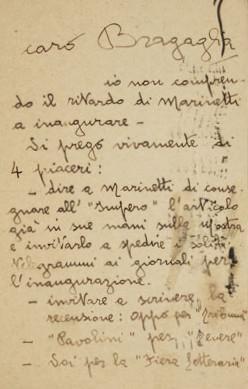 caro Bragaglia
io non compren-
do il ritardo di Marinetti
a inaugurare -
Ti prego vivamente di
4 piaceri:
- dire a Marinetti di conse-
gnare all' "Impero" l'articolo
già in sue mani sulla Mostra
e invitarlo a spedire i soliti
telegrammi ai giornali per
l'inaugurazione.
- invitare a scrivere la
recensione: Oppo per "Tribuna"
- "Pavolini" per "Tevere"
- Soi per la "Fiera Letteraria"